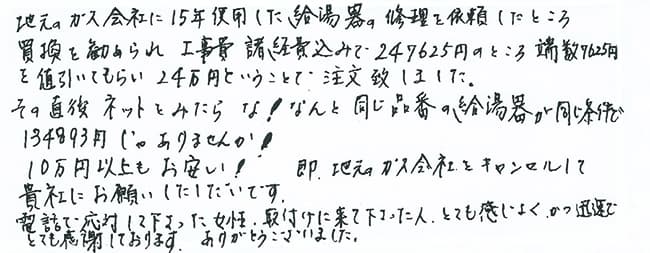 地元のガス会社に15年使用した給湯器の修理を依頼したところ
買換を勧められ 工事費諸経費込みで247625円のところ 端数7625円
を値引いてもらい 24万円ということで 注文致しました。
その直後 ネットをみたら な!なんと 同じ品番の給湯器が同じ条件で
134893円じゃありませんか!
10万円以上もお安い! 即、地元のガス会社をキャンセルして
貴社にお願いしたしだいです。
電話で応対して下さった女性、取付けに来て下さった人、とても感じよく、かつ迅速で
とても感謝しております。ありがとうございました。